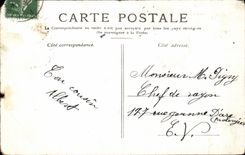 CARTE POSTALE
La Correspondance au recto n'est pas acceptée par tous les pays étrangers
(Se renseigner à la Poste)
Côté correspondance.
Côté adresse.
Ton cousin
Albert
Monsieur M. Pigny
Chef de rayon
127 rue Jeanne D'arc
E. V.